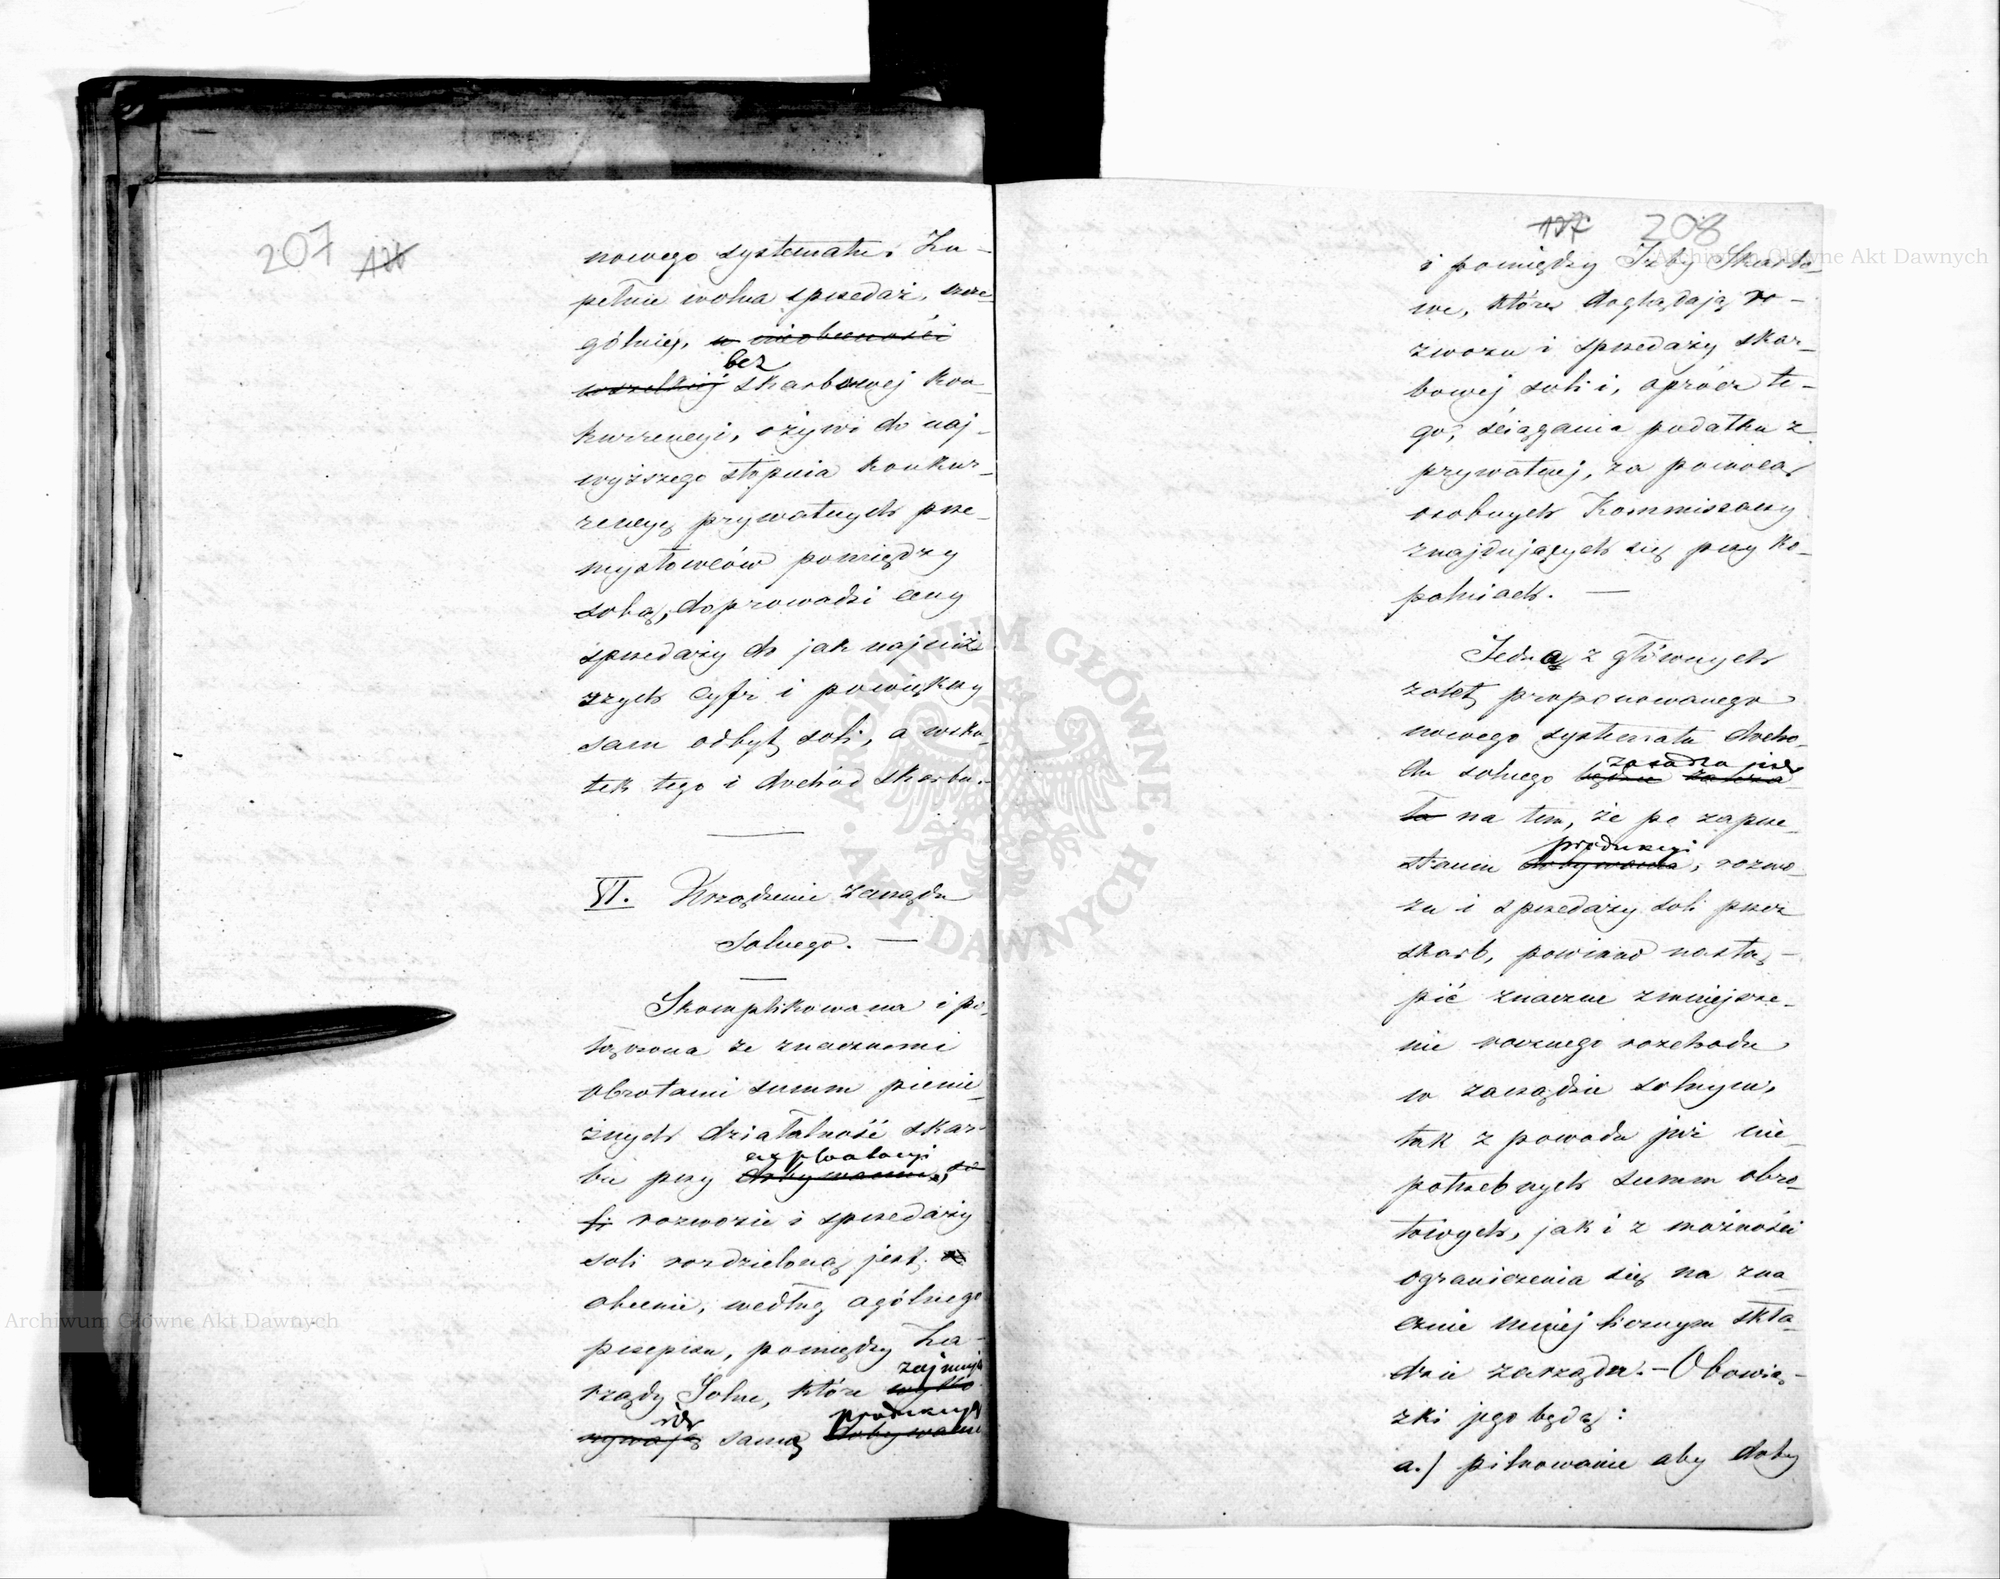 207 126
nowego systematu. Zu-
pełnie wolna sprzedaż, szcze
gólniej, w nieobecności
bez
wszelkiej skarbowej kon
kurrencyi, ożywi do naj-
wyższego stopnia konkur-
rencyę prywatnych prze-
mysłowców pomiędzy
sobą, doprowadzi ceny
sprzedaży do jak najniż
szych cyfr i powiększy
sam odbyt soli, a wsku-
tek tego i dochód skarbu.-
VI. Urządzenie zarządu
Solnego. —
Skomplikowana i po-
łączona ze znacznemi
obrotami summ pienię
żnych działalność skar-
exploatacyi
bu przy dobywaniu, so
li rozwozie i sprzedaży
soli rozdzieloną jest
obecnie, według ogólnego
przepisu, pomiędzy Za-
zajmują
rządy Solne, które wyko
się
nywają samą
produkcyą
dobywanie
127 208
i pomiędzy Izby Skarbo-
we, które doglądają ro-
zwozu i sprzedaży skar-
bowej soli i, oprócz te-
go, ściągania podatku z
prywatnej, za pomocą
osobnych Kommissarzy
znajdujących się przy ko-
palniach. —
Jedna z głównych
zalet proponowanego
nowego systematu docho-
zasadza się
du solnego będzie zależa
ła na tem, że po zaprze-
produkcyi
staniu dobywania, rozwo-
zu i sprzedaży soli przez
skarb, powinno nastą-
pić znaczne zmniejsze-
nie rocznego rozchodu
w zarządzie solnym,
tak z powodu już nie-
potrzebnych summ obro-
towych, jak i z możności
ograniczenia się na zna
cznie mniej licznym skła-
dzie zarządu. — Obowią-
zki jego będą:
a.) pilnowanie aby doby
Archiwum Główne Akt Dawnych
Archiwum Główne Akt Dawnych
ARCHIWUM GŁÓWNE · AKT DAWNYCH ·